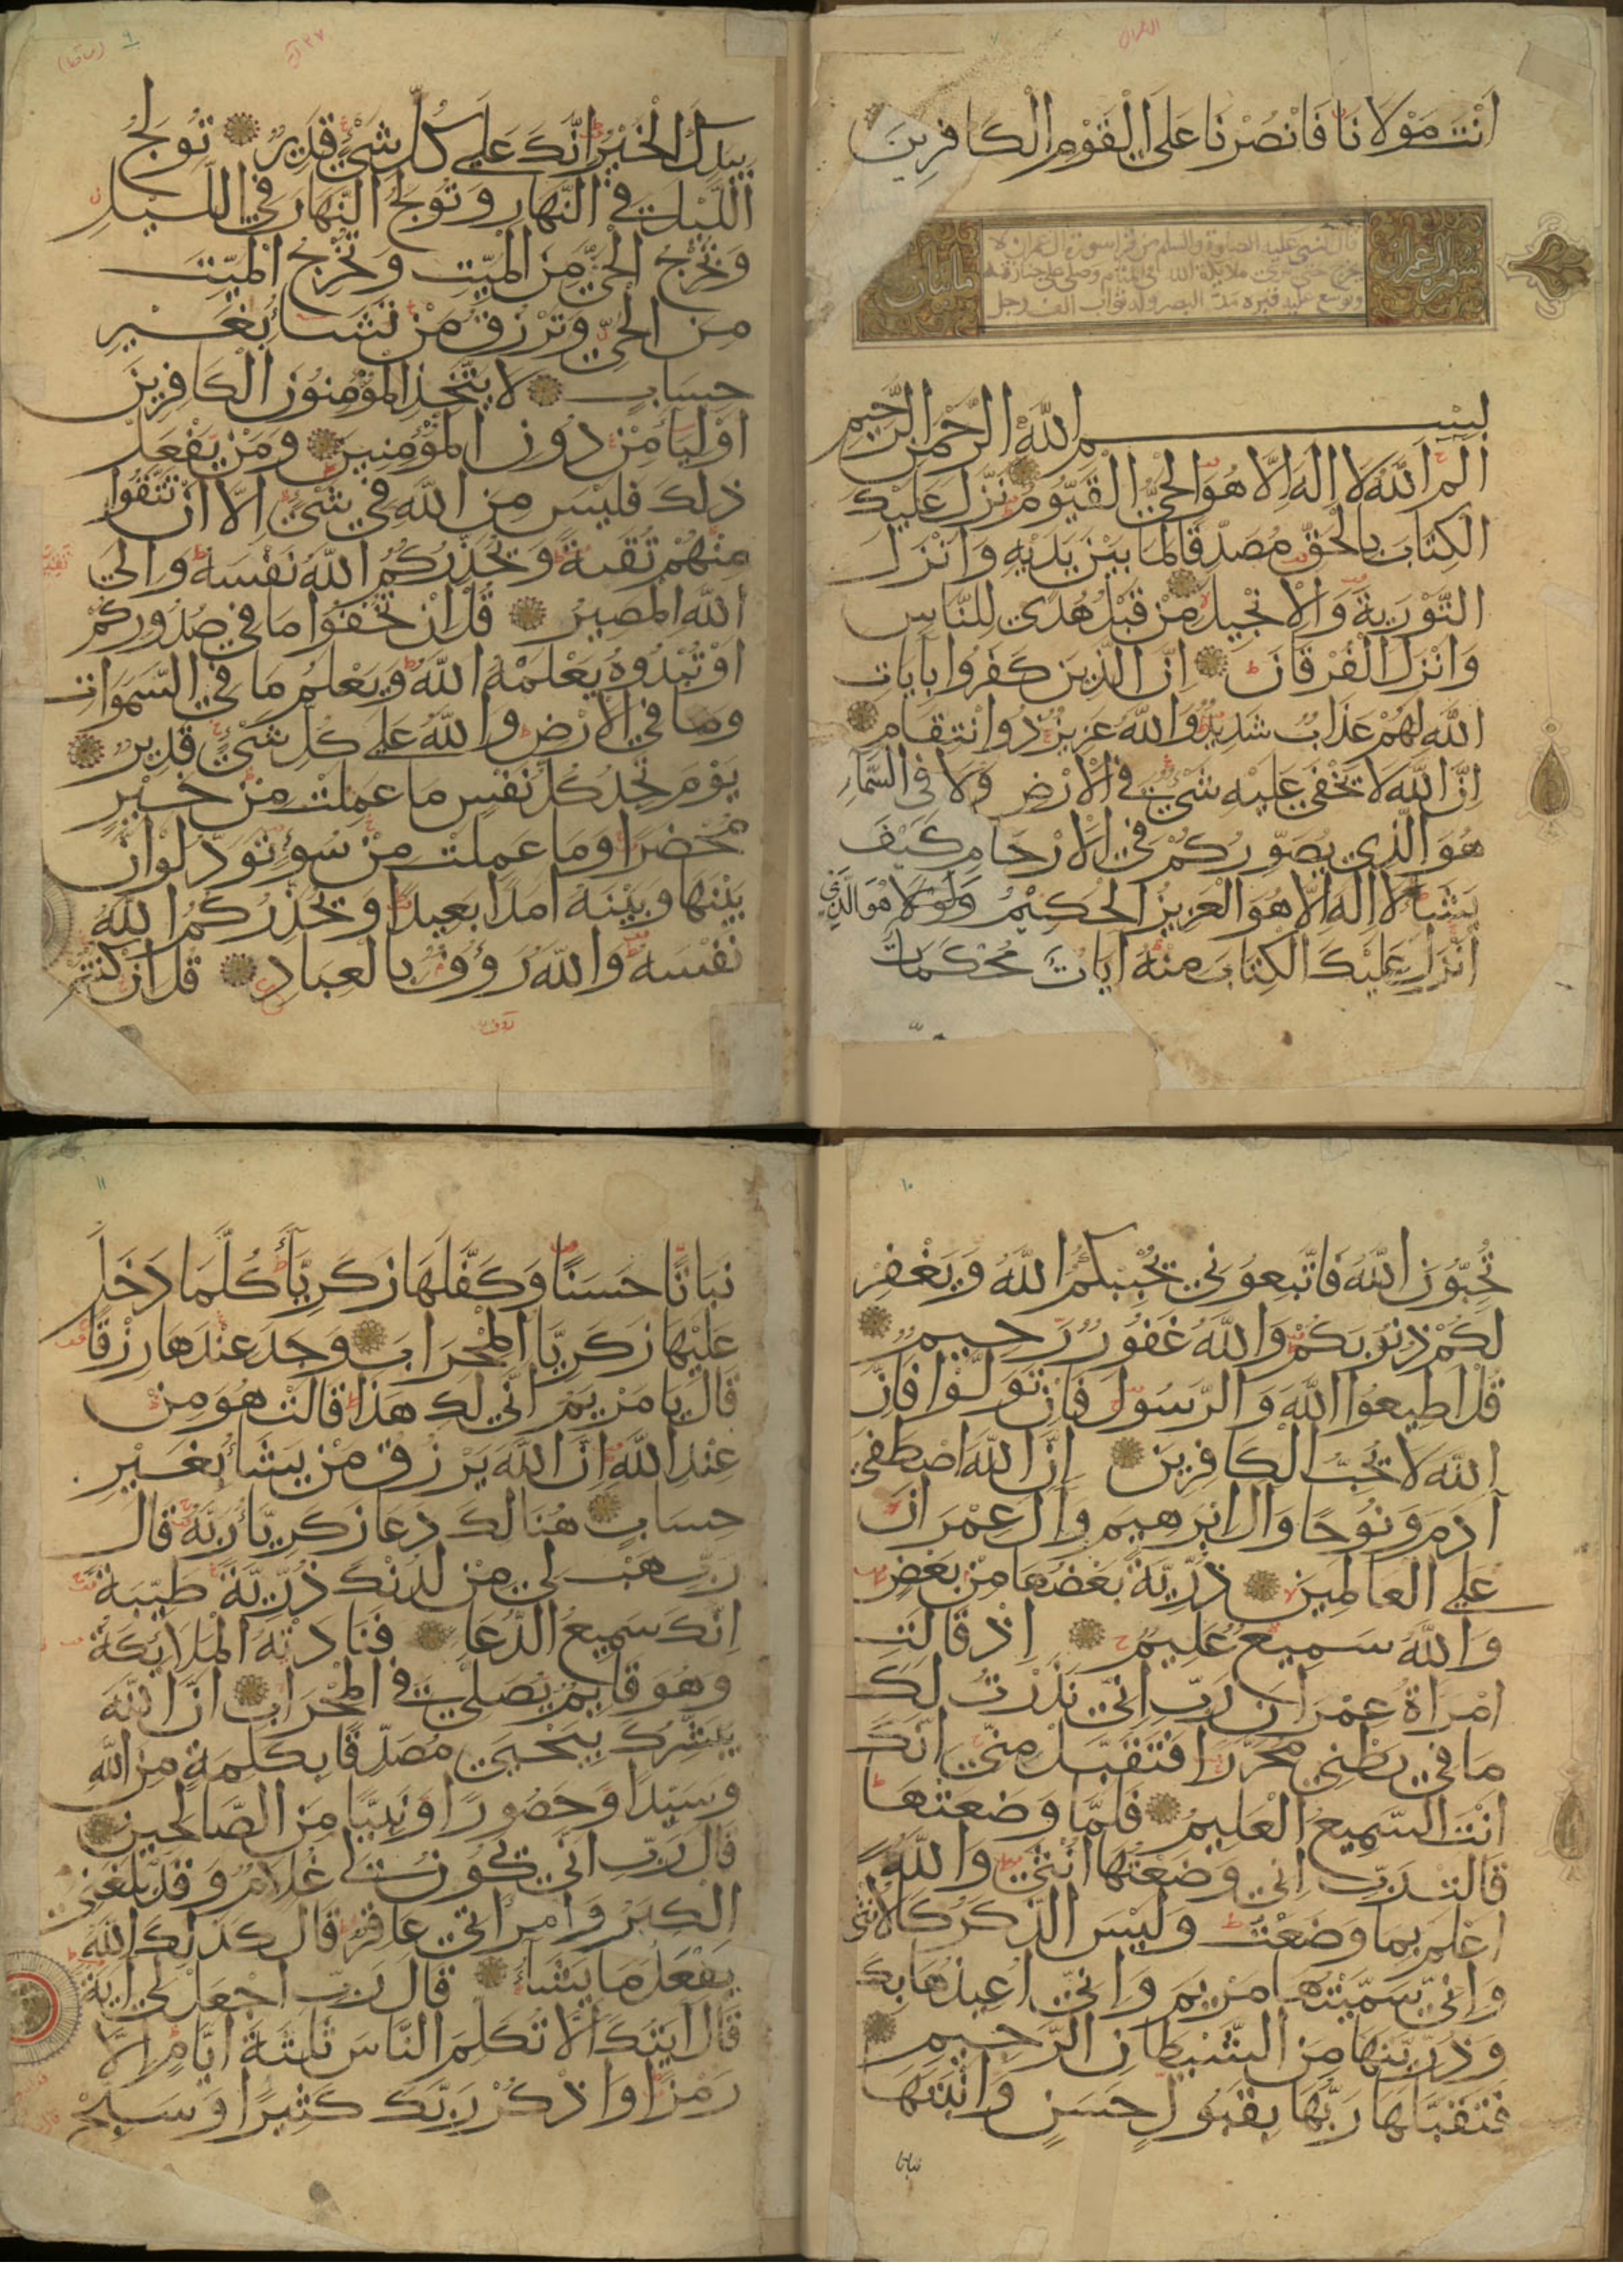 انت مولانا فانصرنا على القوم الكافرين
سورة ال عمران
قال النبى عليه الصلوة والسلم من قرا سورة ال عمران لا
مايتان
بسم الله الرحمن الرحيم
الم الله لا اله الا هو الحي القيوم نزل عليك
الكتاب بالحق مصدقا لما بين يديه وانزل
التورية والانجيل من قبل هدى للناس
وانزل الفرقان ان الذين كفروا بايات
الله لهم عذاب شديد والله عزيز ذو انتقام
ان الله لا يخفى عليه شيء في الارض ولا في السماء
هو الذي يصوركم في الارحام كيف
يشا لا اله الا هو العزيز الحكيم هو الذي
انزل عليك الكتاب منه ايات محكمات
٩
٢٧ آية
بيدك الخير انك على كل شيء قدير تولج
الليل في النهار وتولج النهار في الليل
وتخرج الحي من الميت وتخرج الميت
من الحي وترزق من تشا بغير
حساب لا يتخذ المؤمنون الكافرين
اوليا من دون المؤمنين ومن يفعل
ذلك فليس من الله في شيء الا ان تتقوا
منهم تقية ويحذركم الله نفسه والى
الله المصير قل ان تخفوا ما في صدوركم
او تبدوه يعلمه الله ويعلم ما في السموات
وما في الارض والله على كل شيء قدير
يوم تجد كل نفس ما عملت من خير
محضرا وما عملت من سوء تود لو ان
بينها وبينه امدا بعيدا ويحذركم الله
نفسه والله رؤوف بالعباد قل ان كنتم
١٠
تحبون الله فاتبعوني يحببكم الله ويغفر
لكم ذنوبكم والله غفور رحيم
قل اطيعوا الله والرسول فان تولوا فان
الله لا يحب الكافرين ان الله اصطفى
آدم ونوحا وال ابرهيم وال عمران
على العالمين ذرية بعضها من بعض
والله سميع عليم اذ قالت
امراة عمران رب اني نذرت لك
ما في بطني محررا فتقبل مني انك
انت السميع العليم فلما وضعتها
قالت رب اني وضعتها انثى والله
اعلم بما وضعت وليس الذكر كالانثى
واني سميتها مريم واني اعيذها بك
وذريتها من الشيطان الرجيم
فتقبلها ربها بقبول حسن وانبتها
نباتا
١١
نباتا حسنا وكفلها زكريا كلما دخل
عليها زكريا المحراب وجد عندها رزقا
قال يا مريم انى لك هذا قالت هو من
عند الله ان الله يرزق من يشا بغير
حساب هنالك دعا زكريا ربه قال
رب هب لي من لدنك ذرية طيبة
انك سميع الدعا فنادته الملائكة
وهو قايم يصلي في المحراب ان الله
يبشرك بيحيى مصدقا بكلمة من الله
وسيدا وحصورا ونبيا من الصالحين
قال رب انى يكون لي غلام وقد بلغني
الكبر وامراتي عاقر قال كذلك الله
يفعل ما يشا قال رب اجعل لي اية
قال ايتك الا تكلم الناس ثلثة ايام الا
رمزا واذكر ربك كثيرا وسبح